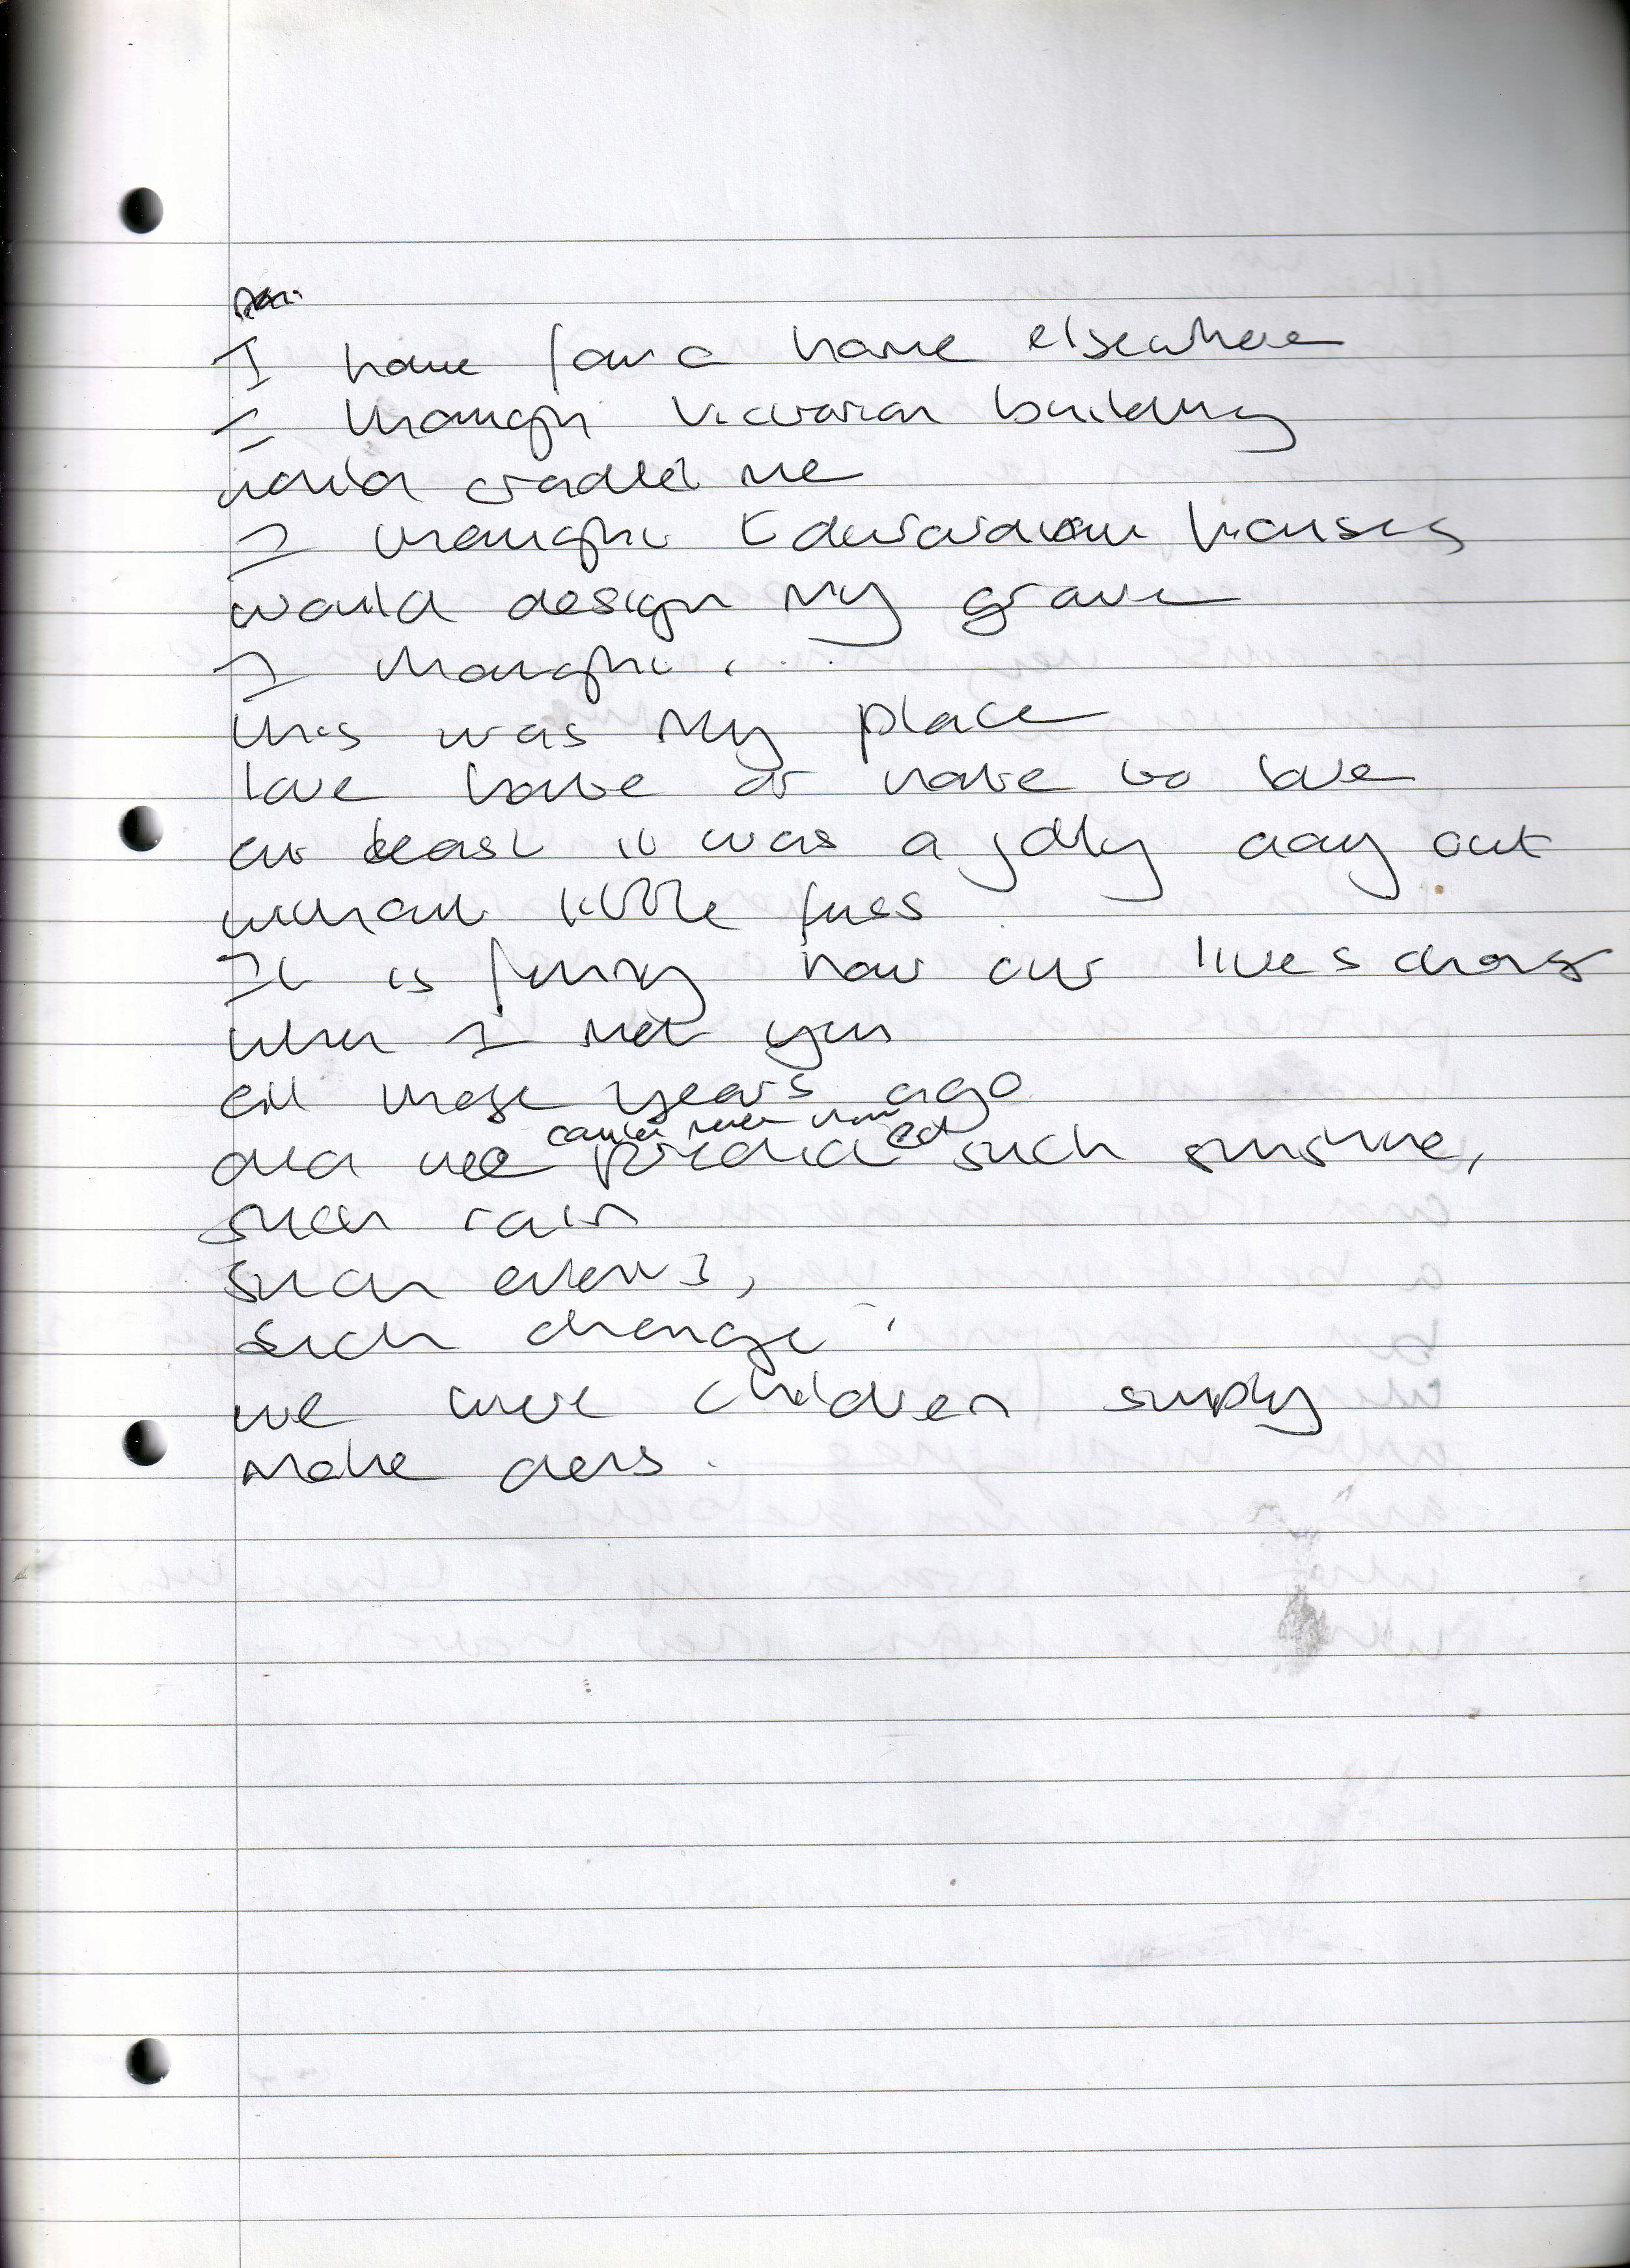 I have found a home elsewhere
I thought Victorian building
would cradle me
I thought Edwardian houses
would design my grave
I thought . . . .
this was my place
love hate or hate to love
at least it was a jolly day out
without little fuss
It is funny how our lives change
when I met you
all those years ago
and we could never have predicted such sunshine,
such rain
such events,
such change.
we were children simply
make